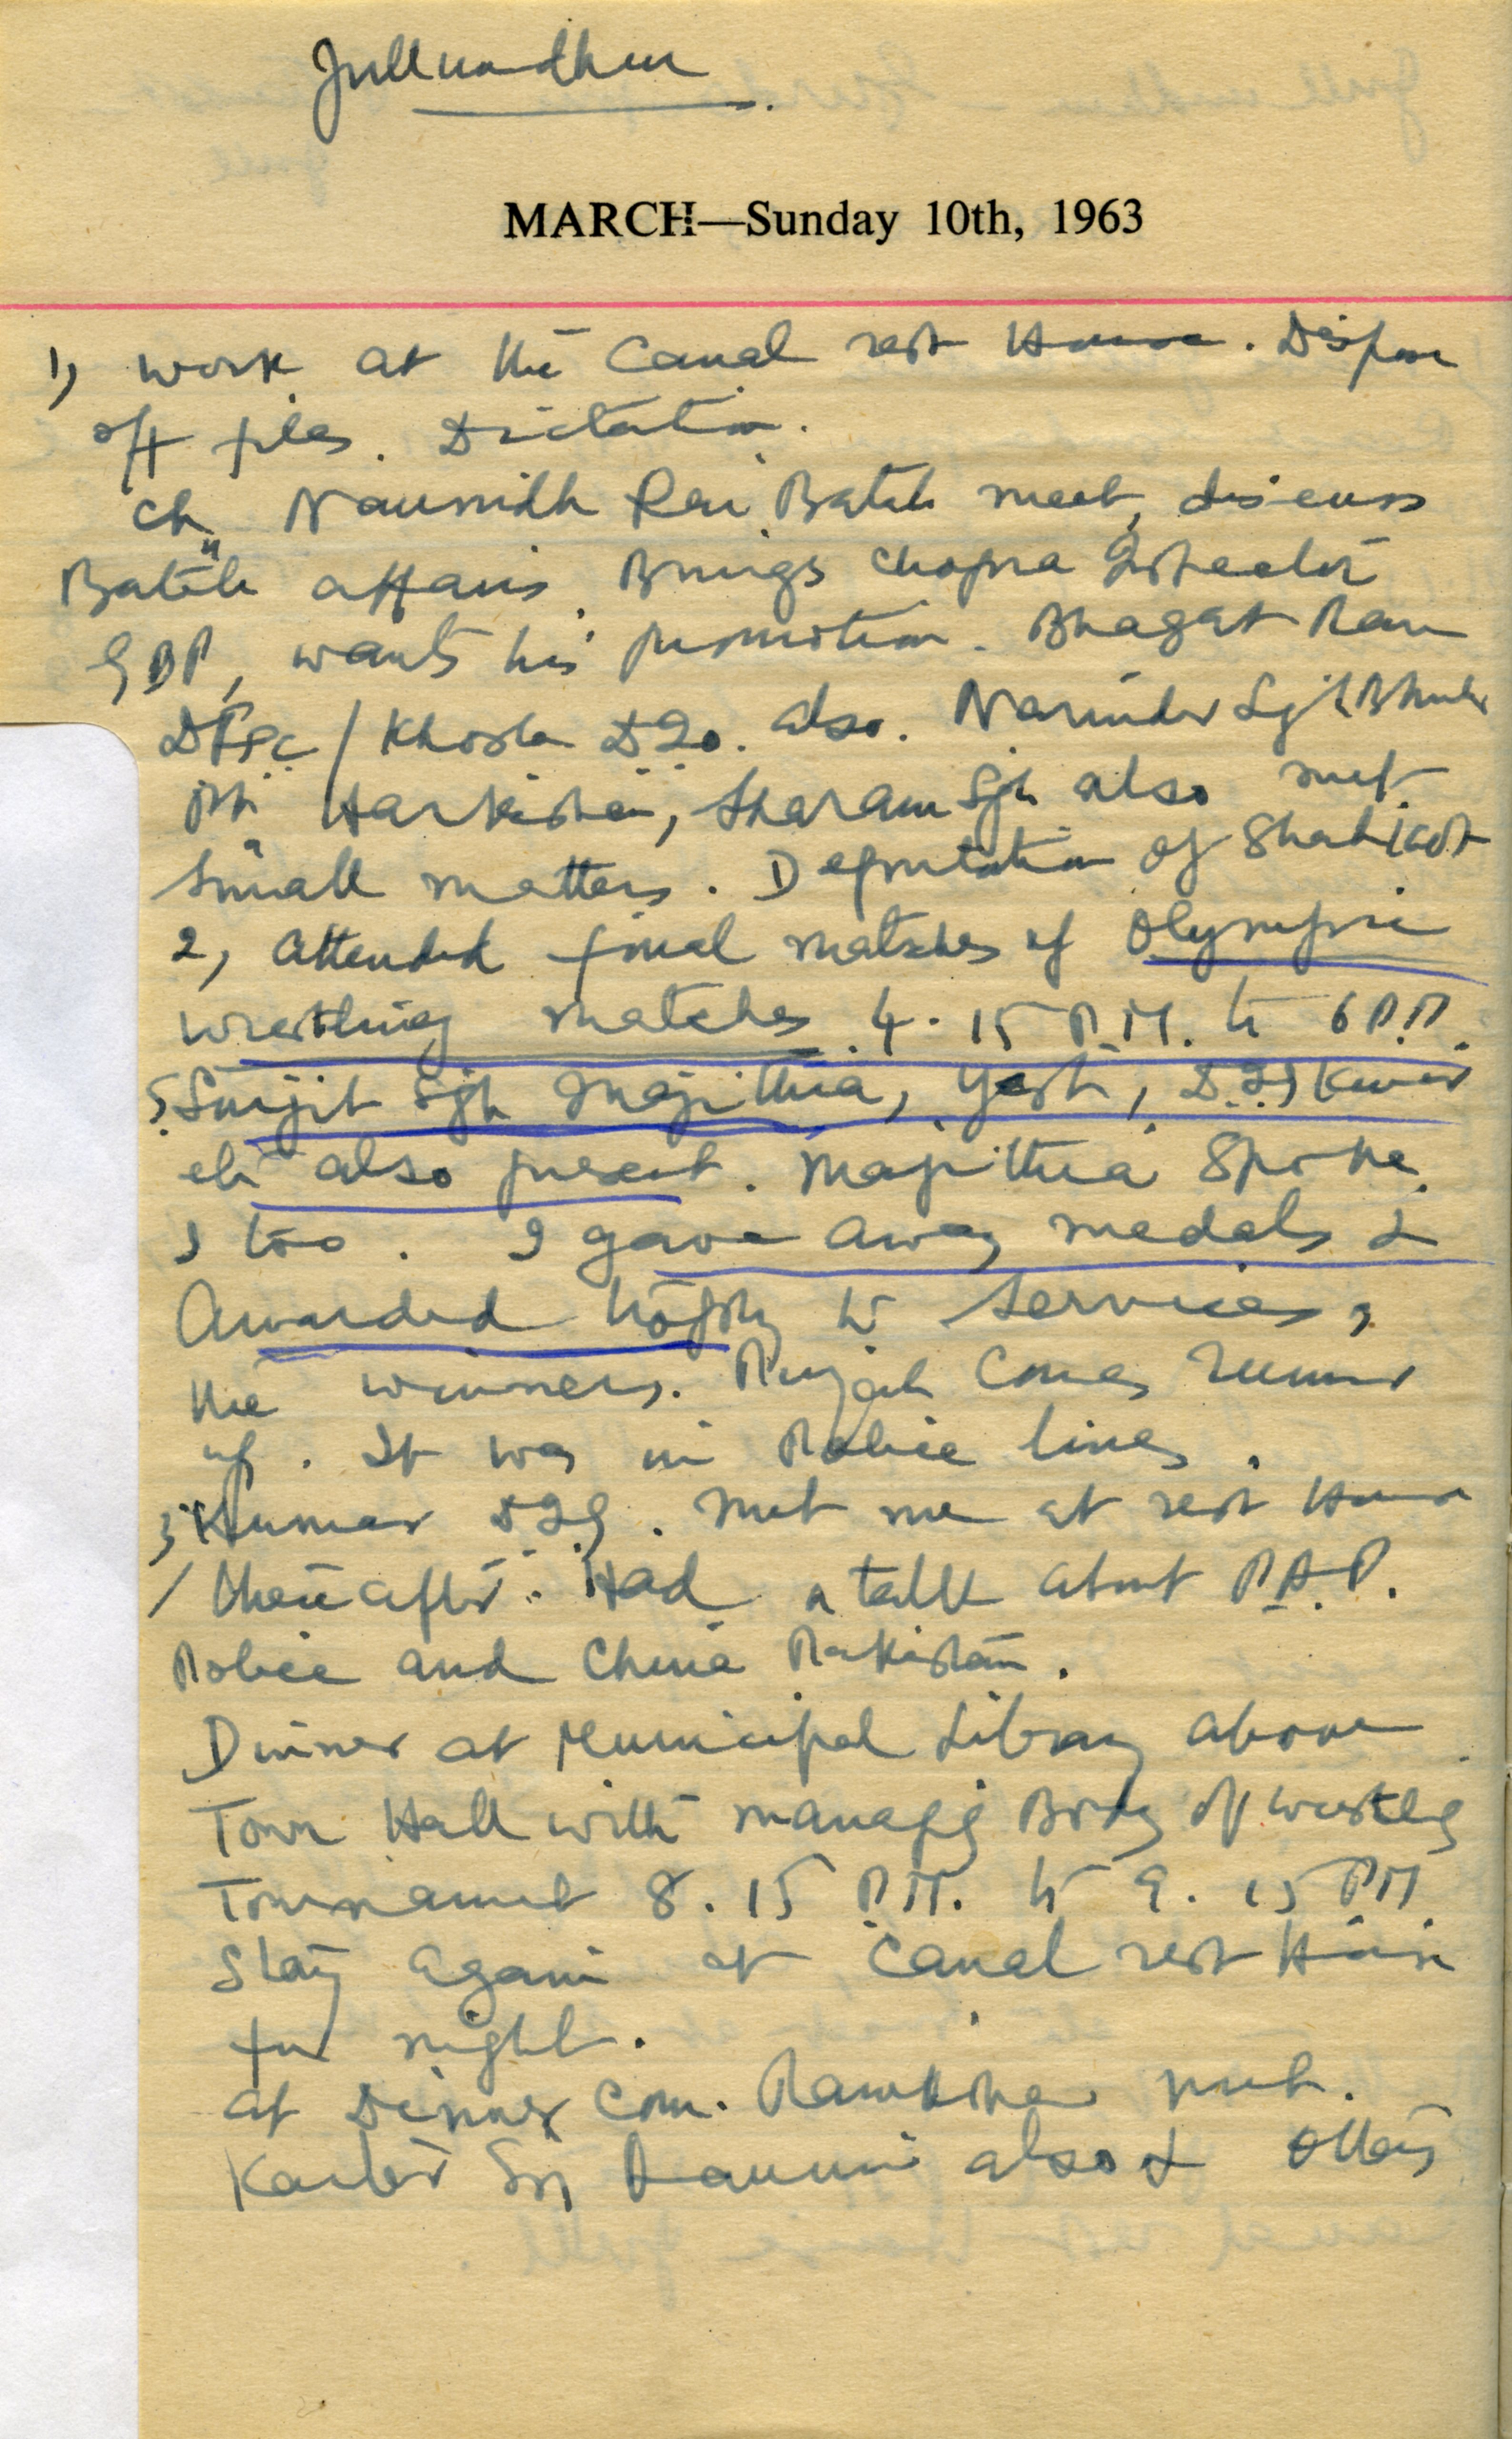 Jullundhur
MARCH—Sunday 10th, 1963
1, work at the Canal rest House. Dispose
off files. Dictation.
Ch. Naunidh Rai Batala meet, discuss
Batala affairs. Brings Chopra Inspector
wants his promotion. Bhagat Ram
/ Khosla also. Narinder Sgh
Harkishan, also met
small matters. Deputation of Shahkot
2, Attended final matches of Olympic
wrestling matches 4.15 P.M. to 6 P.M.
Surjit Sgh Majithia, Yash, D.I.G Kumar
etc also present. Majithia spoke.
I too. I gave away medals &
Awarded trophy to Services,
the winners. Punjab comes runner
up. It was in Police lines.
3, Kumar DIG. met me at rest House
/ thereafter. Had a talk about P.A.P.
Police and China Pakistan.
Dinner at Municipal Library above
Town Hall with managg Body of wrestlg
Tournament 8.15 P.M. to 9.15 PM
Stay again at Canal rest House
for night.
At Dinner Com. Ramkishan met.
Kartar Sgh also & others